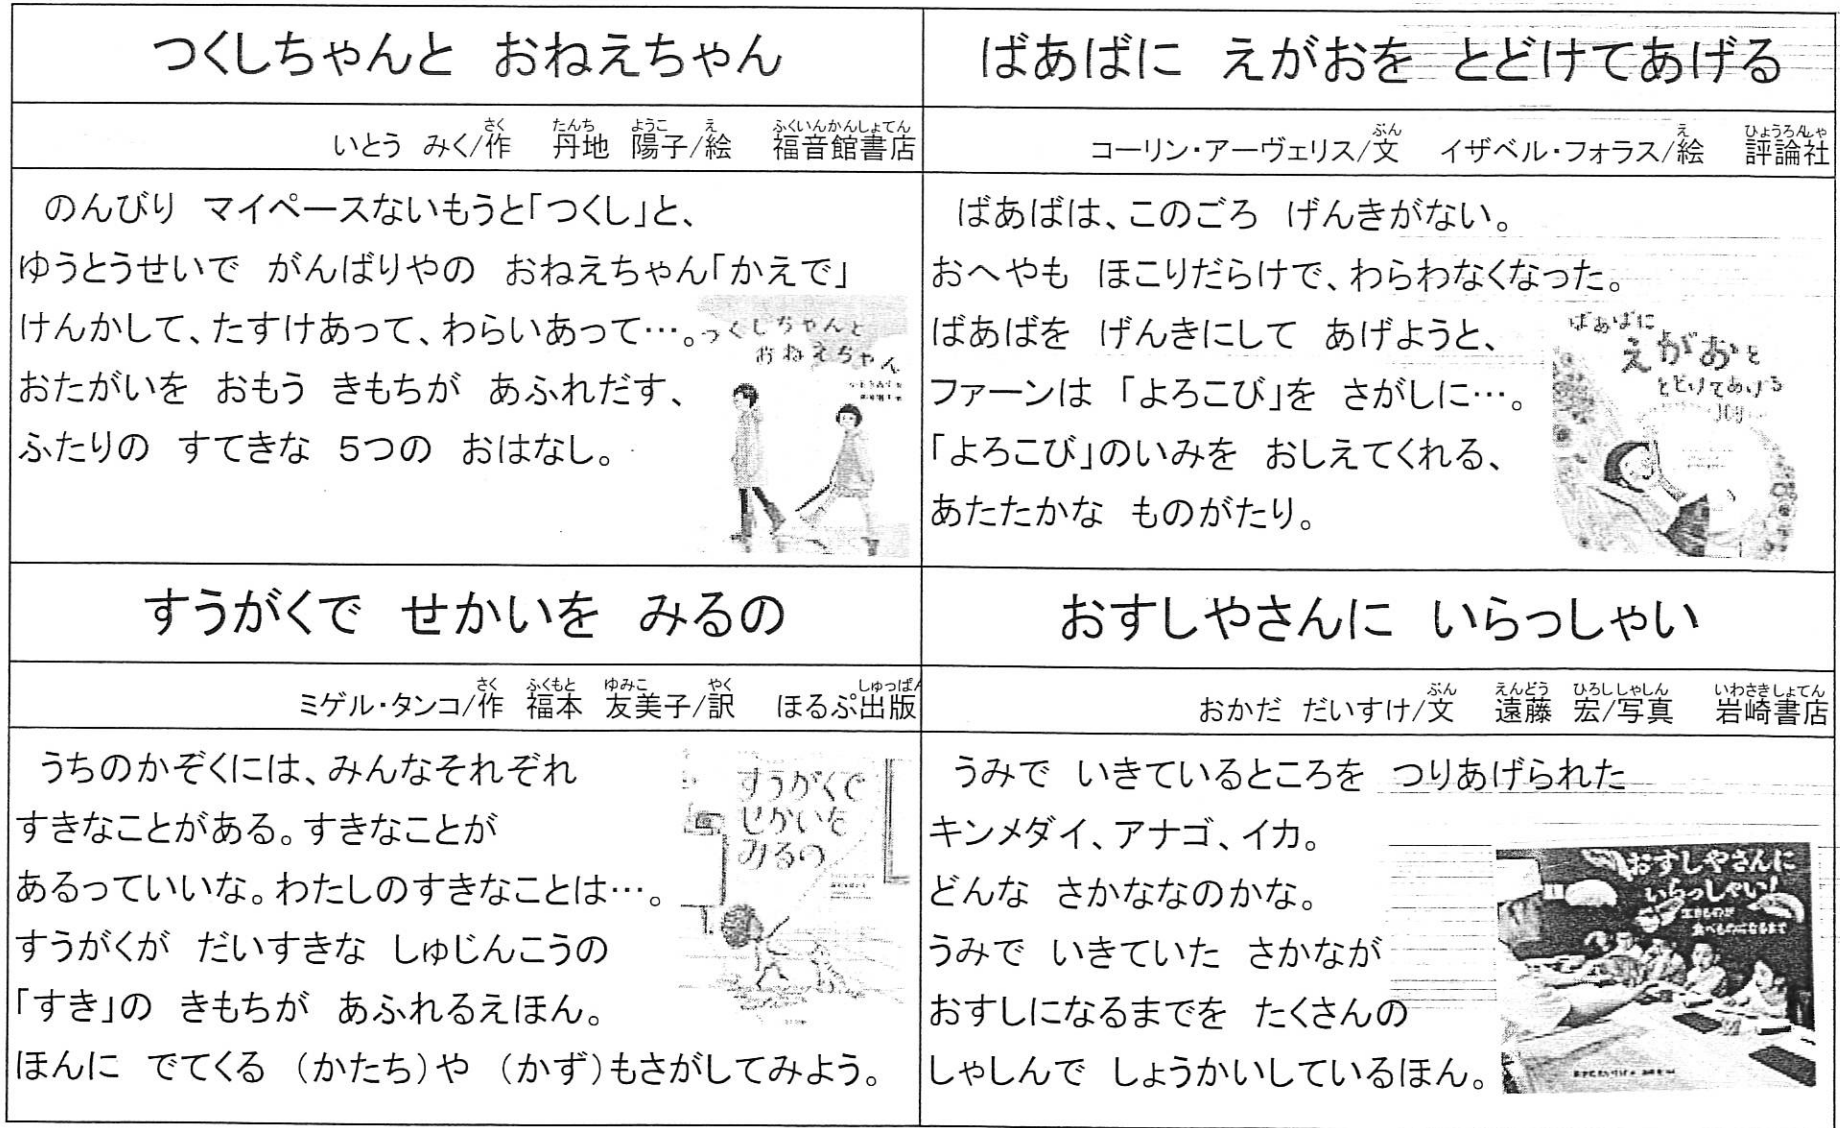 つくしちゃんと おねえちゃん
いとう みく/作 丹地 陽子/絵 福音館書店
さく たんち ようこ え ふくいんかんしょてん
のんびり マイペースないもうと「つくし」と、
ゆうとうせいで がんばりやの おねえちゃん「かえで」
けんかして、たすけあって、わらいあって…。
おたがいを おもう きもちが あふれだす、
ふたりの すてきな 5つの おはなし。
つくしちゃんと
おねえちゃん
ばあばに えがおを とどけてあげる
コーリン・アーヴェリス/文 イザベル・フォラス/絵 評論社
ぶん え ひょうろんしゃ
ばあばは、このごろ げんきがない。
おへやも ほこりだらけで、わらわなくなった。
ばあばを げんきにして あげようと、
ファーンは 「よろこび」を さがしに…。
「よろこび」のいみを おしえてくれる、
あたたかな ものがたり。
ばあばに
えがおを
とどけてあげる
すうがくで せかいを みるの
ミゲル・タンコ/作 福本 友美子/訳 ほるぷ出版
さく ふくもと ゆみこ やく しゅっぱん
うちのかぞくには、みんなそれぞれ
すきなことがある。すきなことが
あるっていいな。わたしのすきなことは…。
すうがくが だいすきな しゅじんこうの
「すき」の きもちが あふれるえほん。
ほんに でてくる (かたち)や (かず)もさがしてみよう。
すうがくで
せかいを
みるの
おすしやさんに いらっしゃい
おかだ だいすけ/文 遠藤 宏/写真 岩崎書店
ぶん えんどう ひろし しゃしん いわさきしょてん
うみで いきているところを つりあげられた
キンメダイ、アナゴ、イカ。
どんな さかななのかな。
うみで いきていた さかなが
おすしになるまでを たくさんの
しゃしんで しょうかいしているほん。
おすしやさんに
いらっしゃい!
生きものが
食べものになるまで